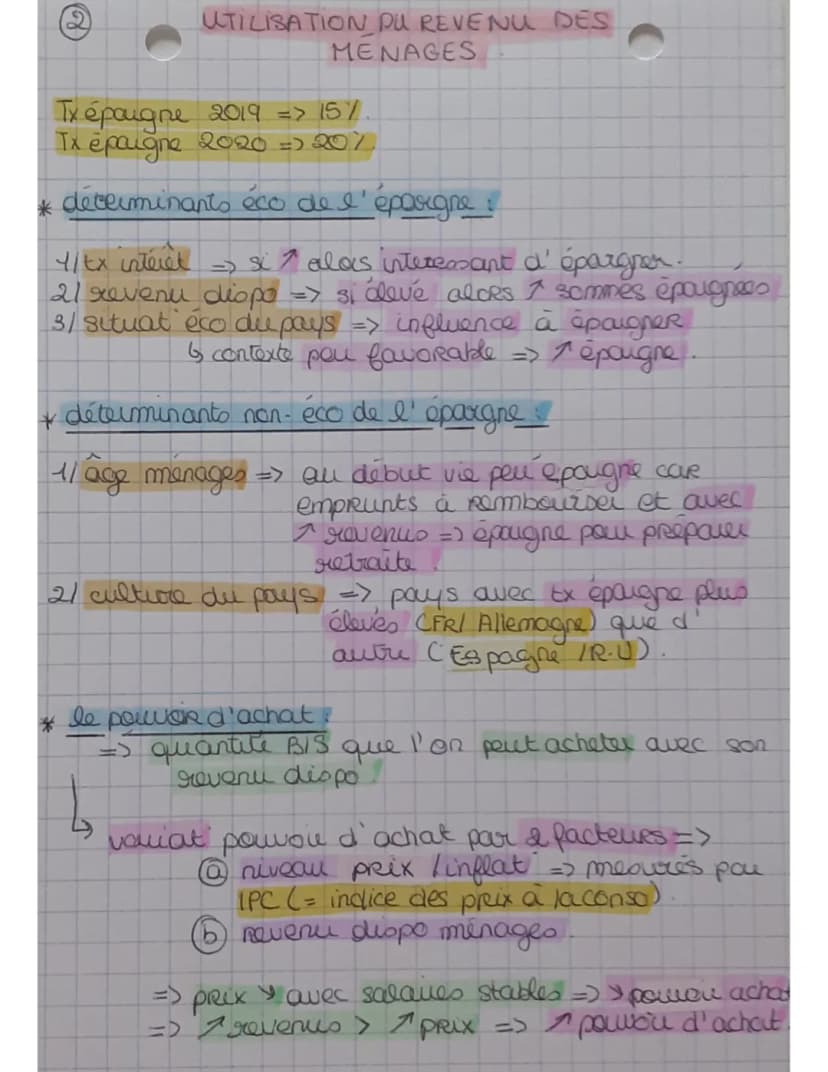 ②
UTILISATION DU REVENU DES
MÉNAGES
Tx épargne 2019 => 15%.
Tx épargne 2020 => 20%.
* déterminants éco de l'épargne :
1/ tx intérêt => si ↗ alors interessant d'épargner.
2/ revenu dispo => si élevé alors ↗ sommes épargnées
3/ situat° éco du pays => influence à épargner
↳ contexte peu favorable => ↗ épargne.
* déterminants non-éco de l'épargne :
1/ âge ménages => au début vie peu épargne car
emprunts à rembourser et avec
↗ revenus => épargne pour préparer
retraite.
2/ culture du pays => pays avec tx épargne plus
élevés (FR/ Allemagne) que d'
autre (Espagne /R.U).
* le pouvoir d'achat :
=> quantité B/S que l'on peut acheter avec son
revenu dispo.
↳ variat° pouvoir d'achat par 2 facteurs =>
ⓐ niveau prix /inflat° => mesurés par
IPC (= indice des prix à la conso).
ⓑ revenu dispo ménages.
=> prix ↘ avec salaires stables => ↘ pouvoir achat
=> ↗ revenus > ↗ prix => ↗ pouvoir d'achat.